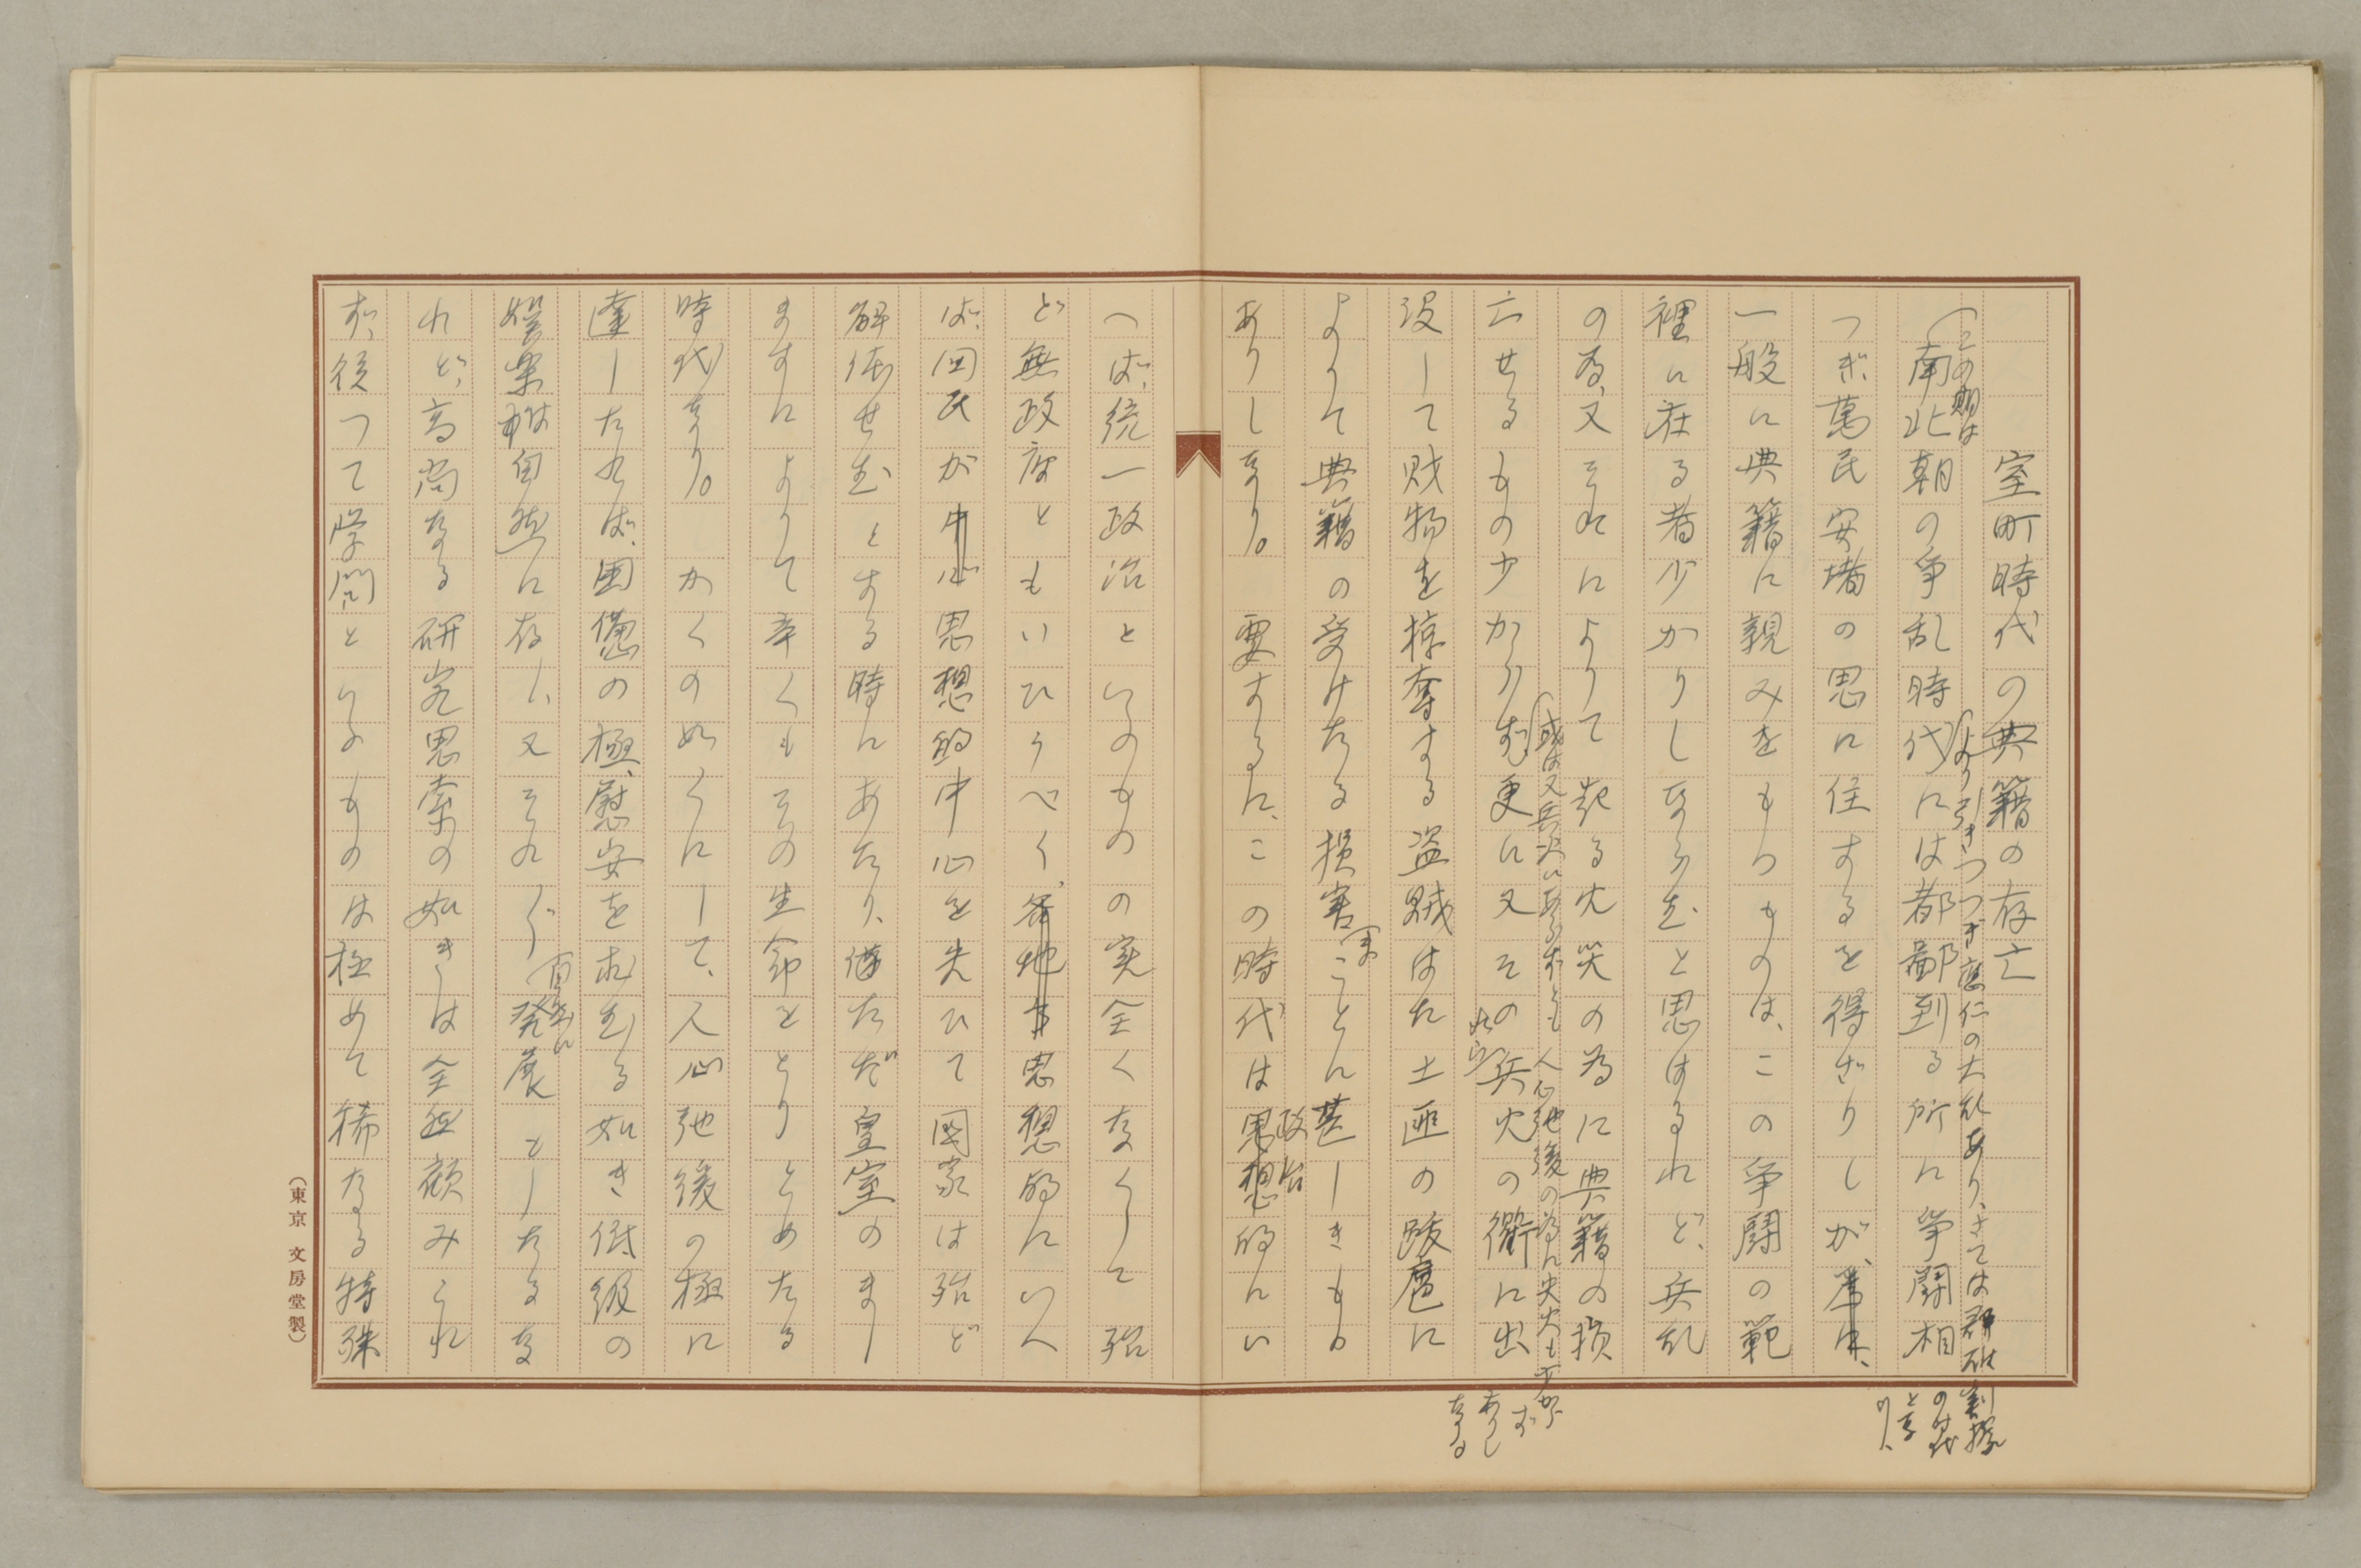 室町時代の典籍の存亡
(この期は
南北朝の争乱時代)には都鄙到る所に争闘相
(より引きつづき應仁の大乱あり、さては群雄割拠
の時代
となり、
つぎ、萬民安堵の思に住するを得ざりしが、
一般に典籍に親みをもつものは、この争闘の範
裡に在る者少かりしならむと思はるれど、兵乱
の為、又それによりて起る火災の為に典籍の損
(或は又兵火にあらずとも人心弛緩の為に失火も少から
ず
ありし
なる
亡せるもの少からず、更に又その兵火の衢に出
如らく
没して財物を掠奪する盗賊はた土匪の跋扈に
よりて典籍の受けたる損害ことに甚しきもの
ありしなり。要するに、この時代は思想的にい
政治
へば、統一政治といふものの実全くなくして殆
ど無政府ともいひうべく、各地方思想的にいへ
ば、国民が中心思想的中心を失ひて国家は殆ど
解体せむとする時にあたり、僅ただ皇室のまし
ますによりて辛くもその生命をとりとめたる
時代なり。かくの如くにして、人心弛緩の極に
達したれば、困憊の極、慰安を求むる如き低級の
娯楽は自然に存し、又それらが発展としたるな
盲気に
れど、高尚なる研究思索の如きは全然顧みられ
ず、従つて学問といふものは極めて稀なる特殊
(東京 文房堂製)